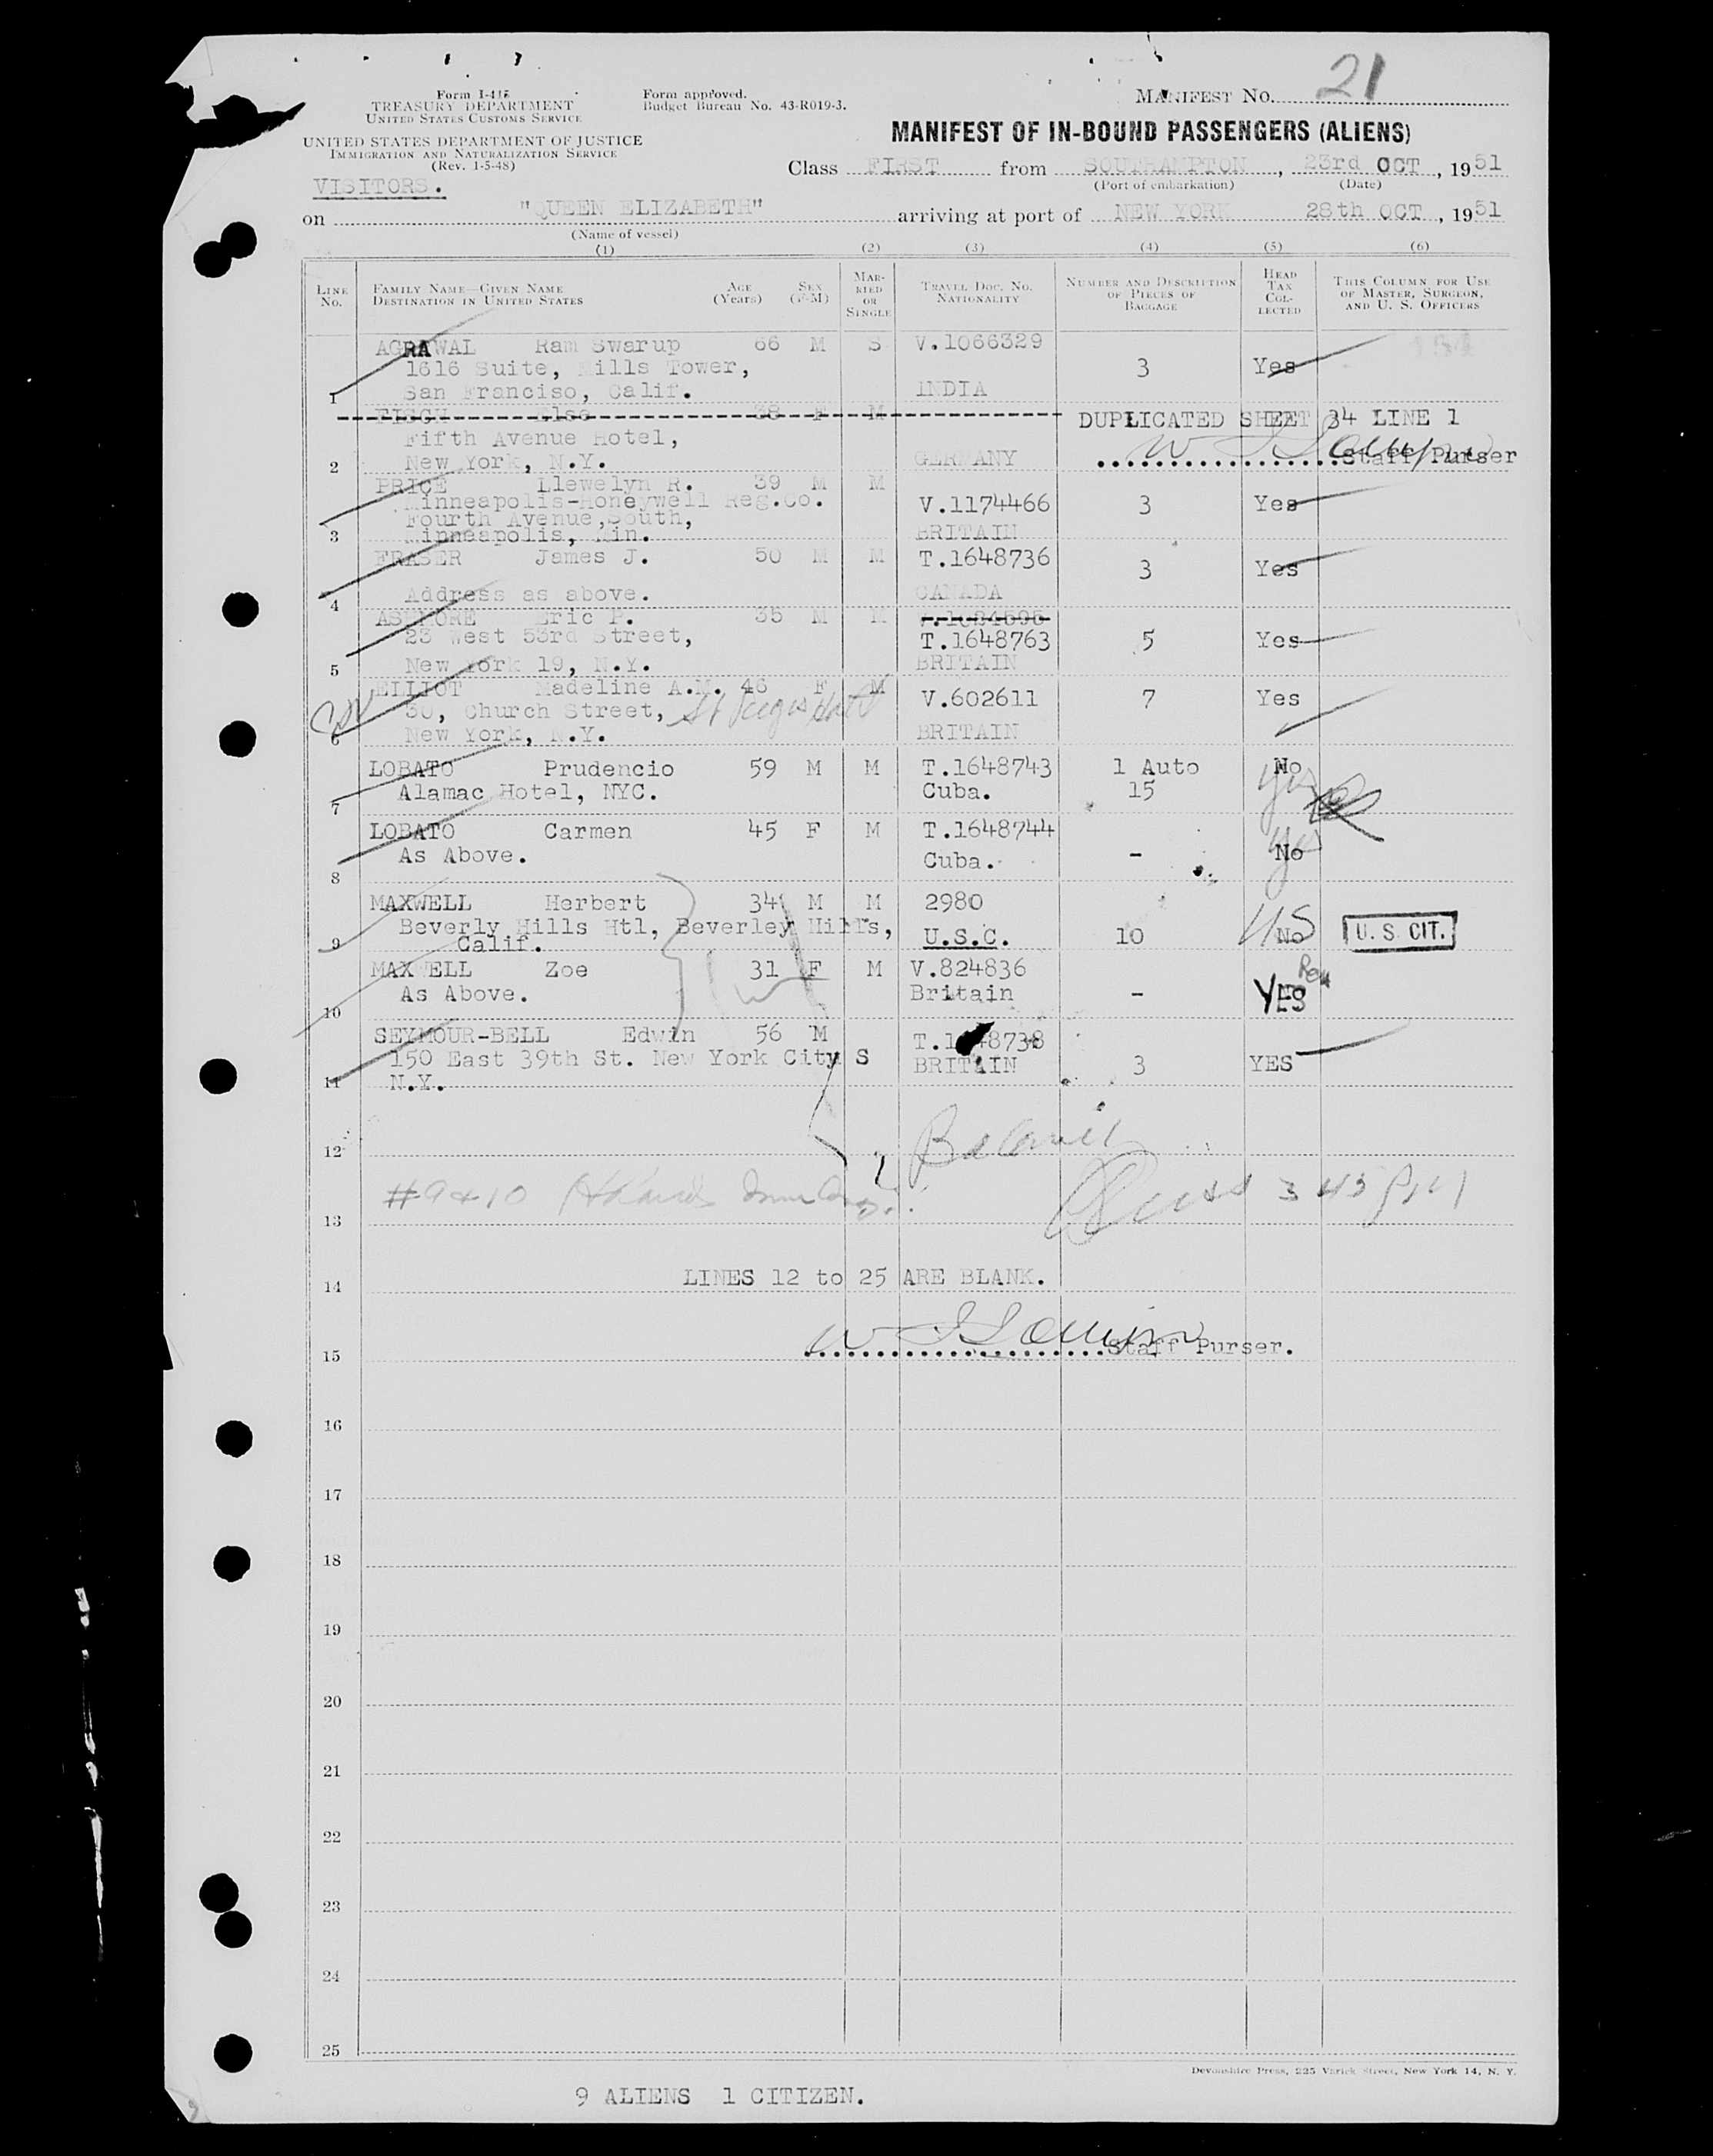 Form I-415
TREASURY DEPARTMENT
UNITED STATES CUSTOMS SERVICE
UNITED STATES DEPARTMENT OF JUSTICE
IMMIGRATION AND NATURALIZATION SERVICE
(Rev. 1-5-48)
VISITORS.
Form approved.
Budget Bureau No. 43-R019-3.
MANIFEST No. 21
MANIFEST OF IN-BOUND PASSENGERS (ALIENS)
Class FIRST from SOUTHAMPTON, 23rd OCT, 1951
(Port of embarkation) (Date)
on "QUEEN ELIZABETH" arriving at port of NEW YORK 28th OCT, 1951
(Name of vessel)
(1) (2) (3) (4) (5) (6)
LINE No. FAMILY NAME—GIVEN NAME DESTINATION IN UNITED STATES AGE (Years) SEX (F-M) MARRIED OR SINGLE TRAVEL DOC. NO. NATIONALITY NUMBER AND DESCRIPTION OF PIECES OF BAGGAGE HEAD TAX COLLECTED THIS COLUMN FOR USE OF MASTER, SURGEON, AND U. S. OFFICERS
AGRAWAL Ram Swarup 66 M S V.1066329
1616 Suite, Mills Tower, 3 Yes
1 San Franciso, Calif. INDIA
FISCH Else 38 F M DUPLICATED SHEET 34 LINE 1
Fifth Avenue Hotel,
2 New York, N.Y. GERMANY Staff Purser
PRICE Llewelyn R. 39 M M
Minneapolis-Honeywell Reg.Co. V.1174466 3 Yes
Fourth Avenue,South,
3 Minneapolis, Min. BRITAIN
FRASER James J. 50 M M T.1648736 3 Yes
4 Address as above. CANADA
ASHMORE Eric P. 35 M M
23 West 53rd Street, T.1648763 5 Yes
5 New York 19, N.Y. BRITAIN
ELLIOT Madeline A.M. 46 F M V.602611 7 Yes
30, Church Street, St Regis Hotel
6 New York, N.Y. BRITAIN
LOBATO Prudencio 59 M M T.1648743 1 Auto No
7 Alamac Hotel, NYC. Cuba. 15 yes
LOBATO Carmen 45 F M T.1648744 yes
8 As Above. Cuba. - No
MAXWELL Herbert 34 M M 2980 US
9 Beverly Hills Htl, Beverley Hills, U.S.C. 10 No U. S. CIT.
Calif.
MAXWELL Zoe 31 F M V.824836
10 As Above. Britain - YES
SEYMOUR-BELL Edwin 56 M T.1648738
150 East 39th St. New York City S BRITAIN 3 YES
11 N.Y.
12
#9 & 10
13
14 LINES 12 to 25 ARE BLANK.
15 Staff Purser.
16
17
18
19
20
21
22
23
24
25
Devonshire Press, 225 Varick Street, New York 14, N. Y.
9 ALIENS 1 CITIZEN.